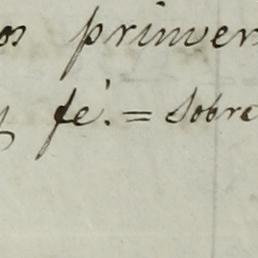 os primer
y fé. = Sobre